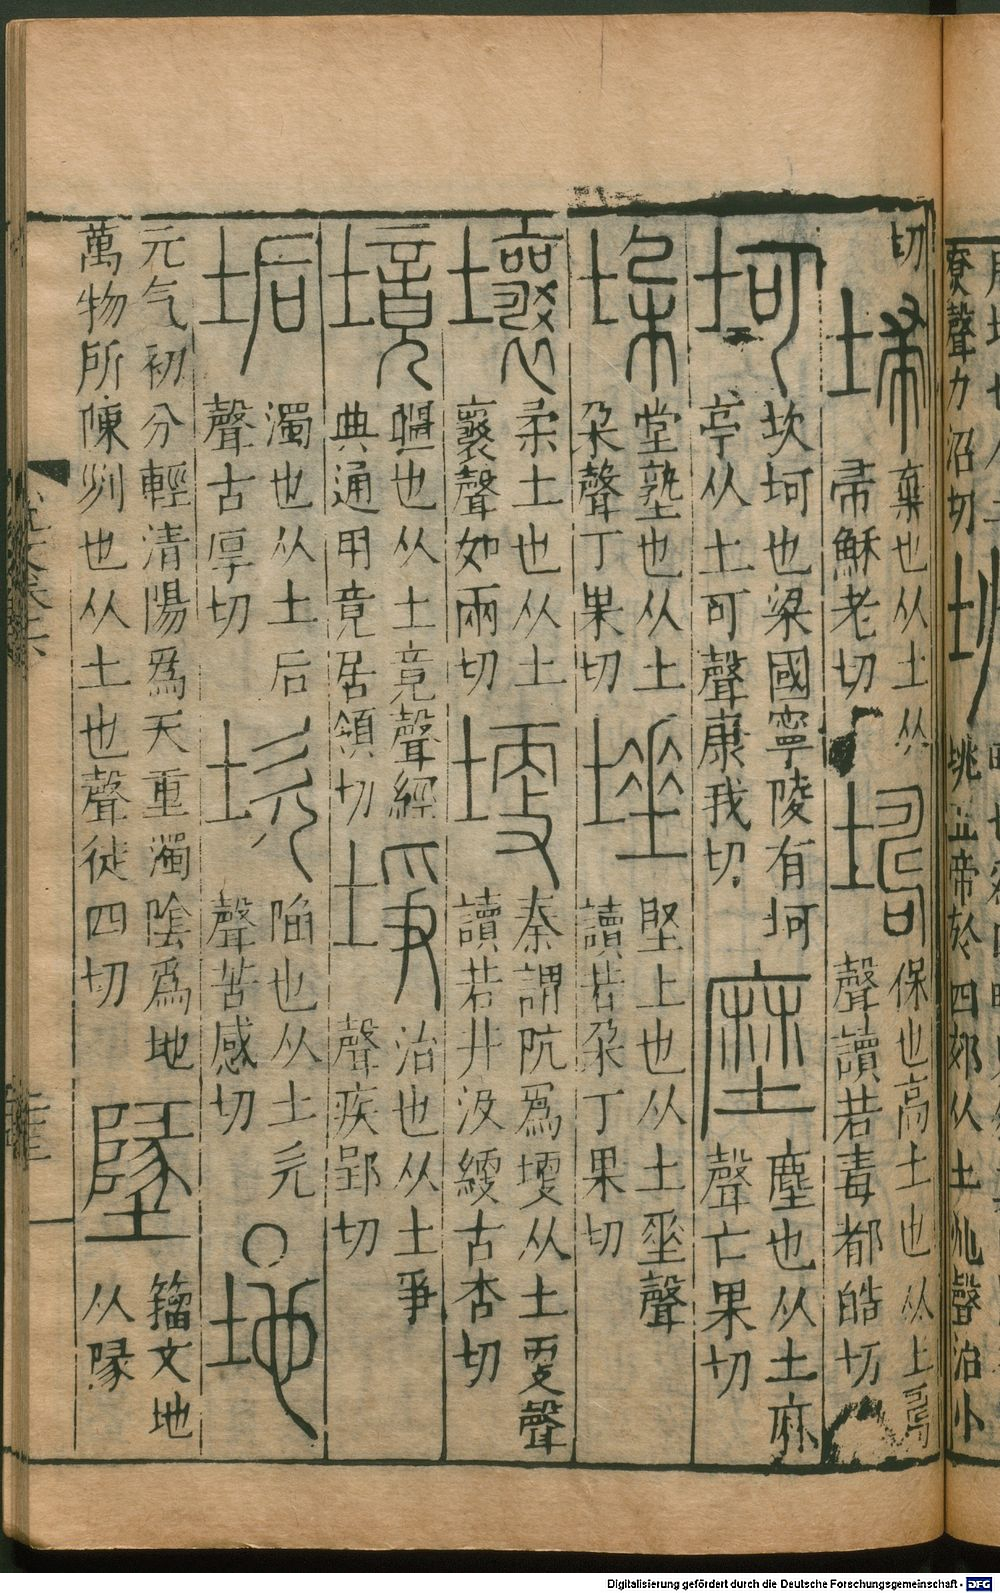 尞聲力沼切
垗
垗五帝於四郊从土兆聲治小
切
埽
棄也从土从
帚穌老切
壔
保也高土也从土𠷎
聲讀若毒都皓切
坷
坎坷也梁國寧陵有坷
亭从土可聲康我切
塺
塵也从土麻
聲亡果切
垜
堂塾也从土
朵聲丁果切
埵
堅上也从土坙聲
讀若朵丁果切
壤
柔土也从土
襄聲如兩切
埂
秦謂阬爲埂从土㪅聲
讀若井汲綆古杏切
境
疆也从土竟聲經
典通用竟居領切
埩
治也从土爭
聲疾郢切
垢
濁也从土后
聲古厚切
坎
陷也从土欠
聲苦感切
○地
元气初分輕清陽爲天重濁陰爲地
萬物所陳列也从土也聲徒四切
墬
籒文地
从隊
Digitalisierung gefördert durch die Deutsche Forschungsgemeinschaft - DFG